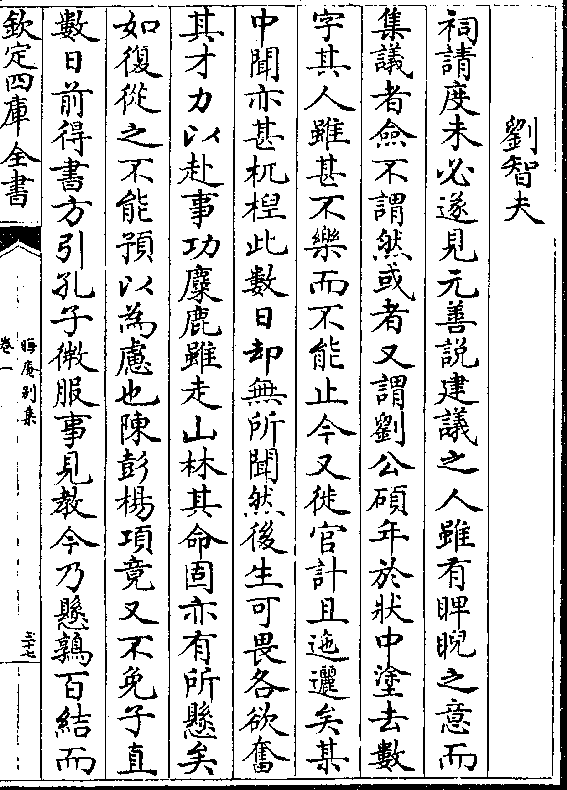 劉智夫
祠請度未必遂見元善説建議之人雖有睥睨之意而
集議者僉不謂然或者又謂劉公碩年於狀中塗去數
字其人雖甚不樂而不能止今又徙官計且迤邐矣某
中聞亦甚杌桯此數日却無所聞然後生可畏各欲奮
其才力以赴事功麋鹿雖走山林其命固亦有所懸矣
如復從之不能預以為慮也陳彭楊項竟又不免子直
數日前得書方引孔子微服事見教今乃懸鶉百結而
欽定四庫全書
晦庵别集
卷一
三十七